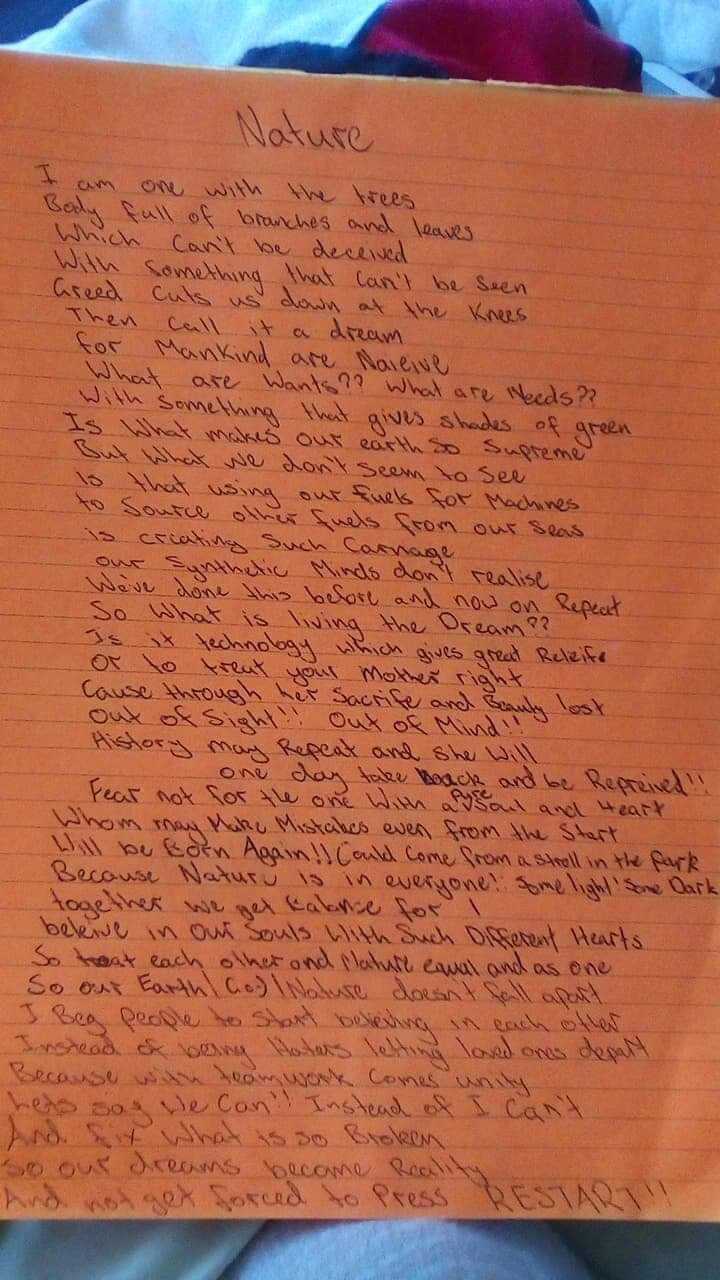 Nature
I am one with the trees
Body full of branches and leaves
Which can't be deceived
With something that can't be seen
Greed cuts us down at the knees
Then call it a dream
for Mankind are Naieive
What are Wants?? What are Needs??
With something that gives shades of green
Is what makes our earth so supreme
But what we don't seem to see
is that using our fuels for Machines
to source other fuels from our seas
is creating such carnage
our synthetic Minds don't realise
We've done this before and now on Repeat
So what is living the Dream??
Is it technology which gives great Releife
or to treat your mother right
Cause through her Sacrife and Beauty lost
Out of Sight!! Out of Mind!!
History may Repeat and she will
one day take back and be Repreived!!
Fear not for the one with a Pure Soul and Heart
Whom may Make Mistakes even from the start
Will be Born Again!! Could come from a stroll in the park
Because Nature is in everyone! Some light! Some Dark
together we get Balance for 1
beleive in our souls with such Different Hearts
So treat each other and Nature equal and as one
So our Earth/God/Nature doesn't fall apart
I Beg people to start beleiving in each other
Instead of being Haters letting loved ones depart
Because with teamwork comes unity
Lets say We Can!! Instead of I Can't
And fix what is so Broken
so our dreams become Reality
And not get forced to Press RESTART!!